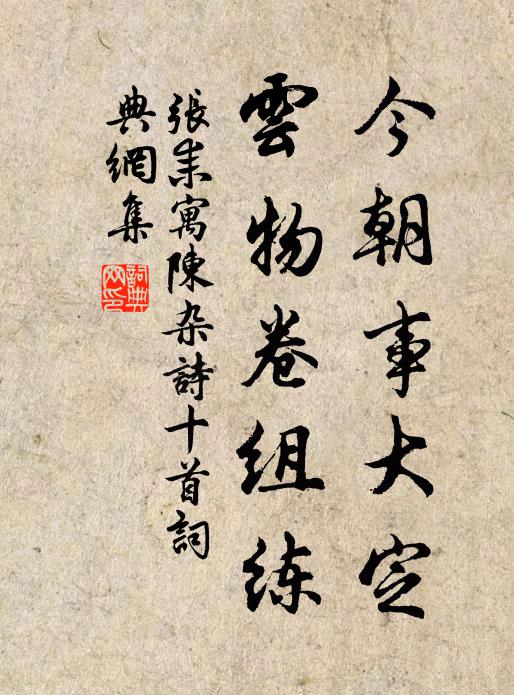 今朝事大定
雲物卷组练
張耒寓陳杂詩十首詞
典網集
詞典
网印